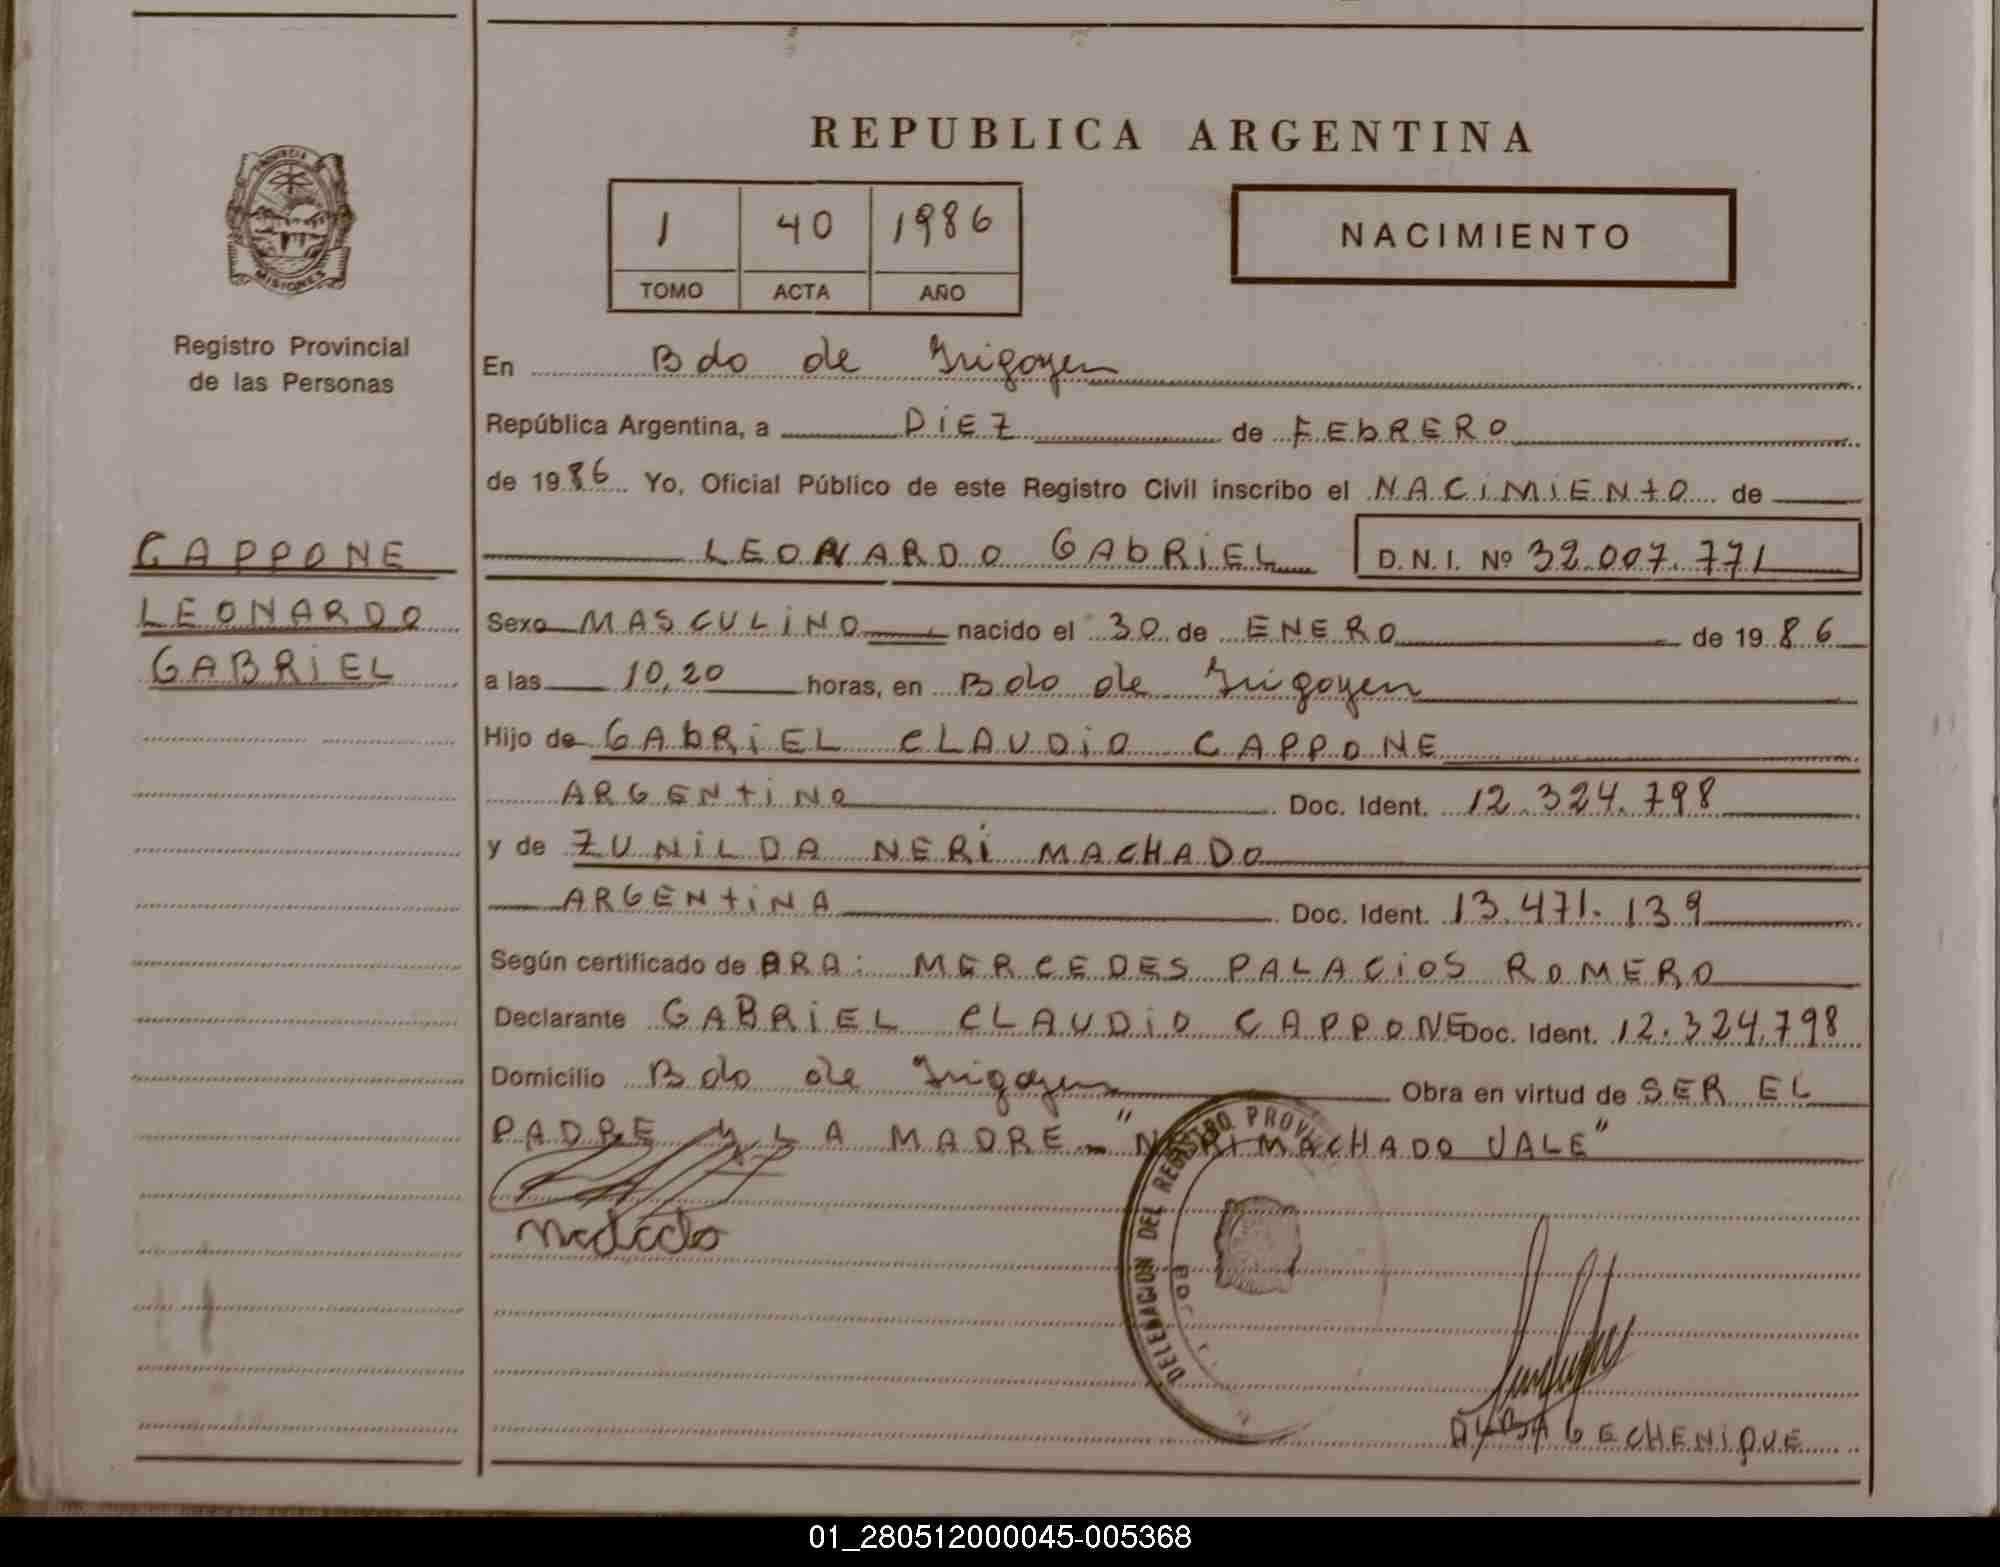 REPUBLICA ARGENTINA
PROVINCIA
MISIONES
Registro Provincial
de las Personas
1 40 1986
TOMO ACTA AÑO
NACIMIENTO
CAPPONE
LEONARDO
GABRIEL
En Bdo de Irigoyen
República Argentina, a DIEZ de FEbRERO
de 1986 Yo, Oficial Público de este Registro Civil inscribo el NACIMIENtO de
LEONARDO GAbRIEL D.N.I. Nº 32.007.771
Sexo MASCULINO nacido el 30 de ENERO de 1986
a las 10,20 horas, en Bdo de Irigoyen
Hijo de GAbRIEL CLAUDIO CAPPONE
ARGENtINO Doc. Ident. 12.324.798
y de ZUNILDA NERI MACHADO
ARGENtINA Doc. Ident. 13.471.139
Según certificado de DRA: MERCEDES PALACIOS ROMERO
Declarante GABRIEL CLAUDIO CAPPONE Doc. Ident. 12.324.798
Domicilio Bdo de Irigoyen Obra en virtud de SER EL
PADRE y LA MADRE - "NERI MACHADO VALE"
DELEGACION DEL REGISTRO
G ECHENIQUE
01_280512000045-005368